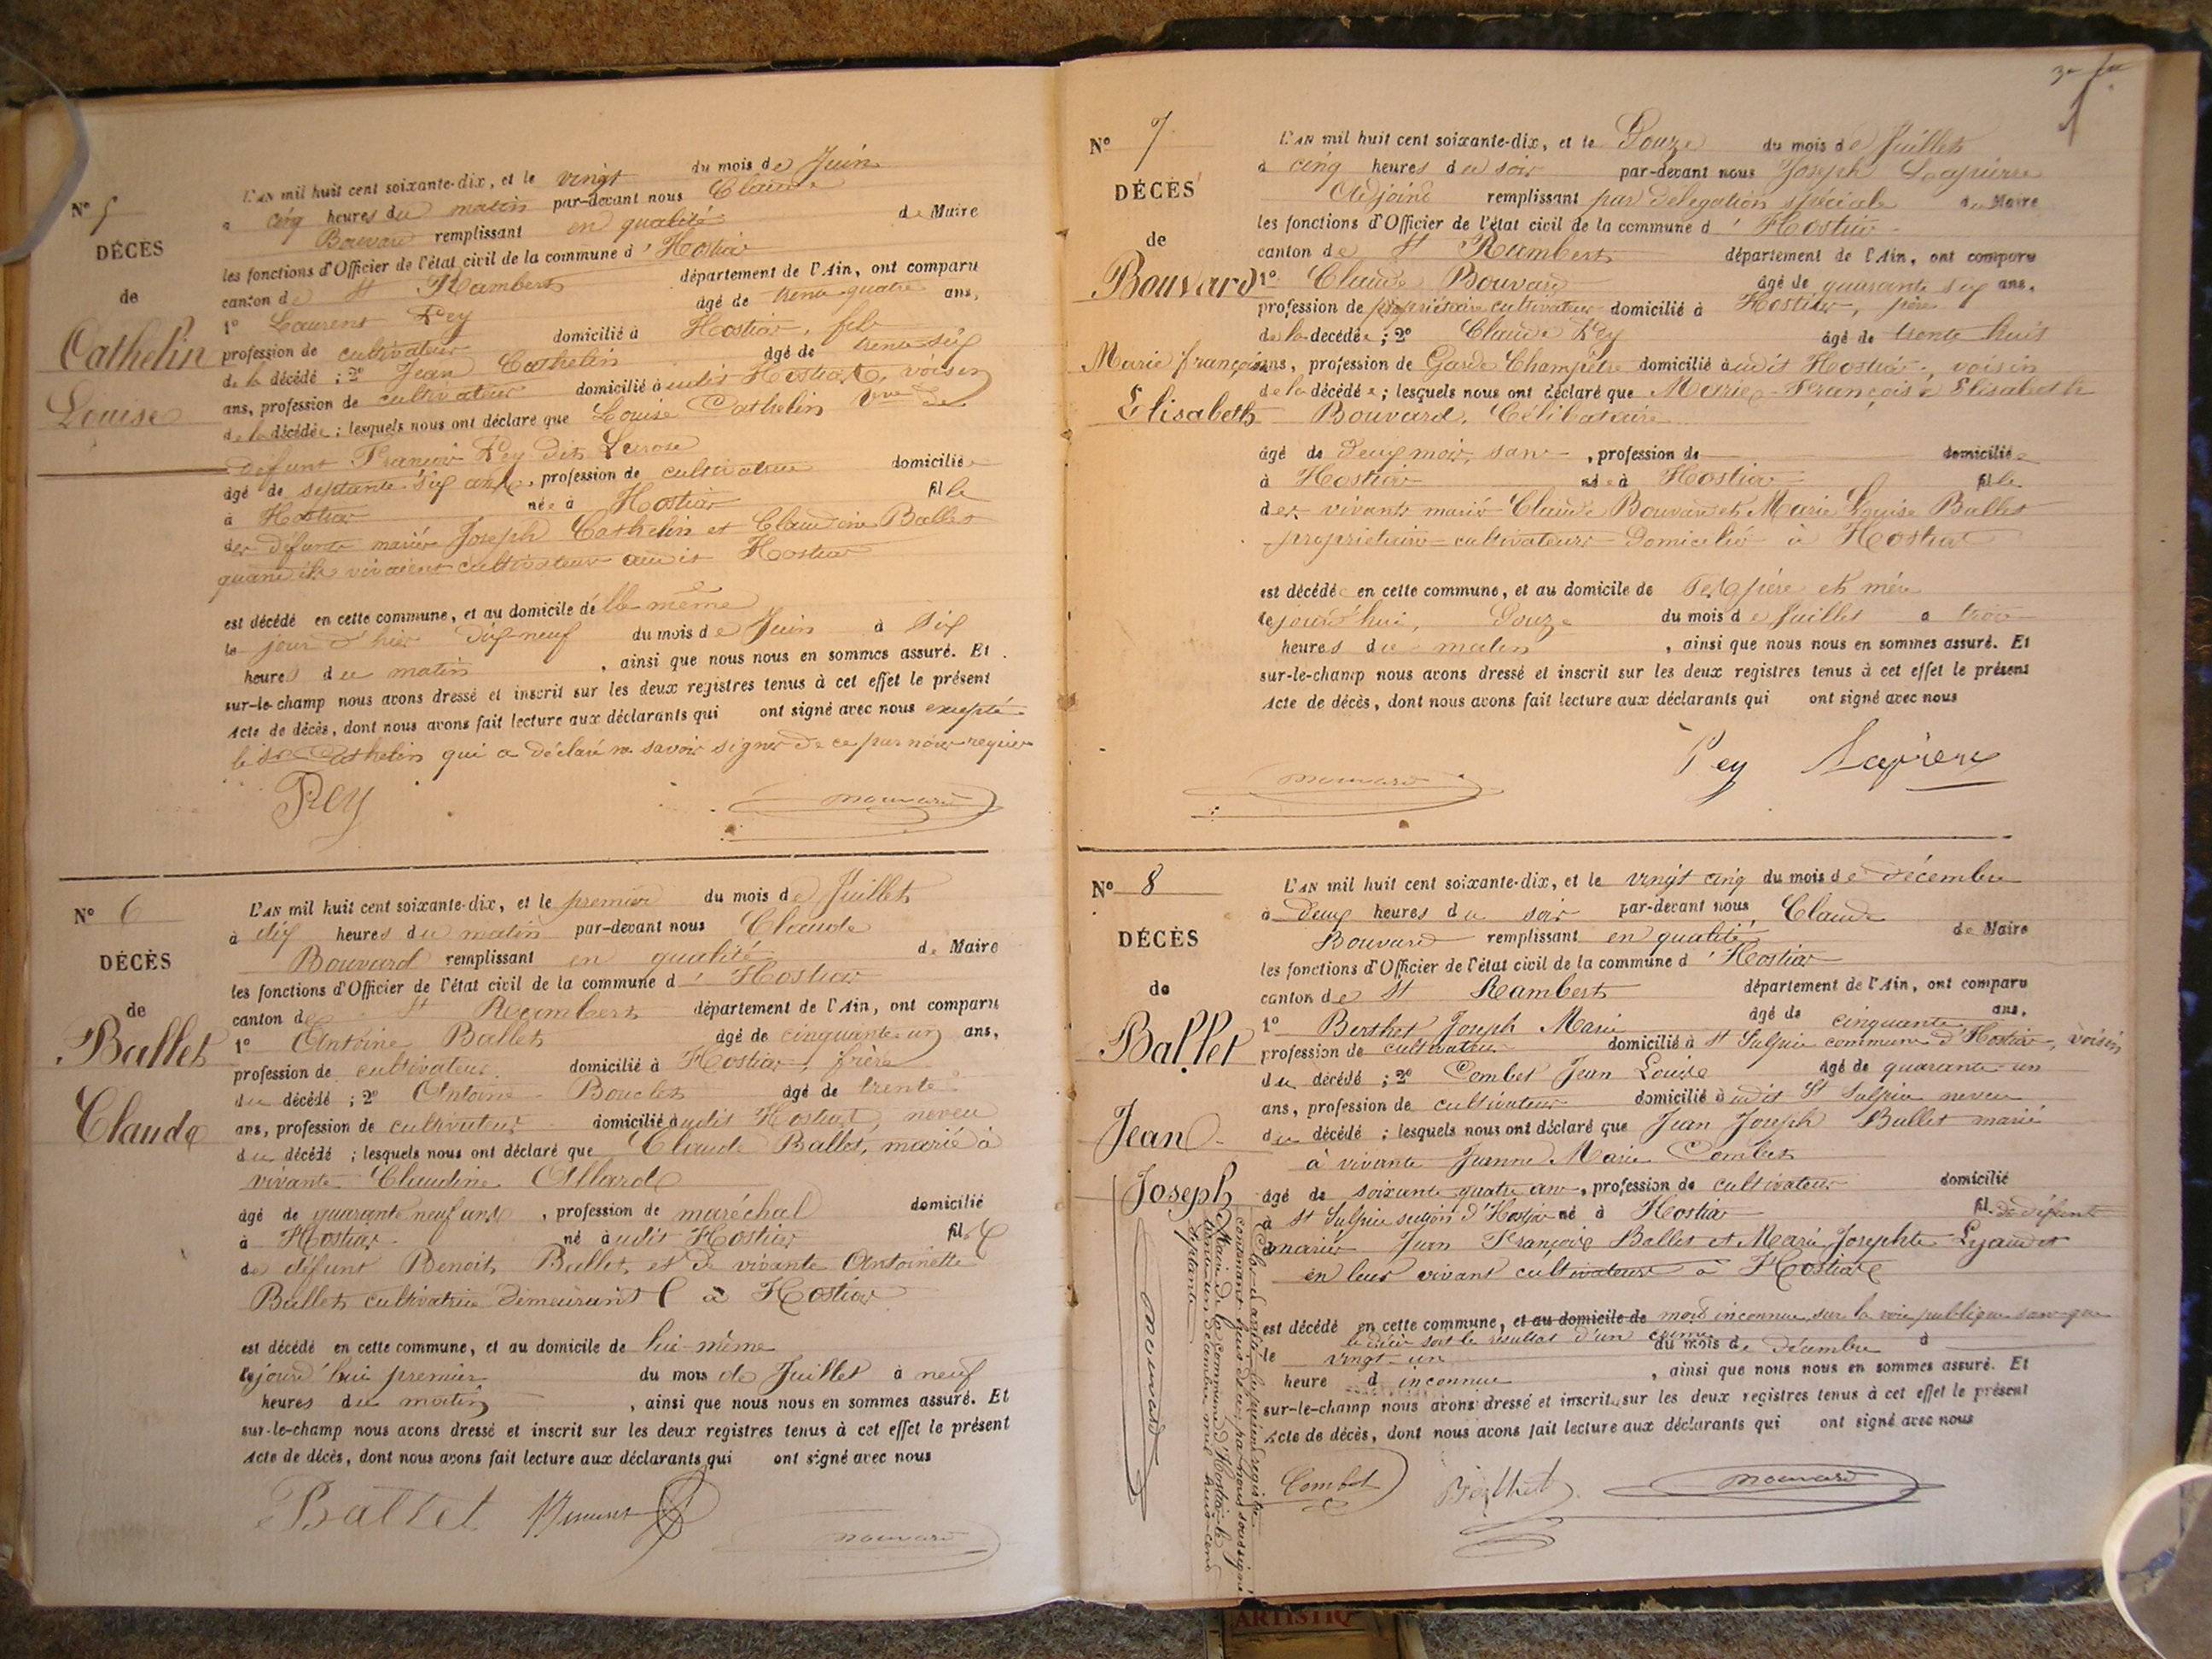 Nº 5
DÉCÈS
de
Cathelin
Louise
L'AN mil huit cent soixante-dix, et le vingt du mois de Juin
à cinq heures du matin par-devant nous Claude
Bouvard remplissant en qualité de Maire
les fonctions d'Officier de l'état civil de la commune d'Hostiaz
canton de St Rambert département de l'Ain, ont comparu
1º Laurent Pey âgé de trente quatre ans,
profession de cultivateur domicilié à Hostiaz, fils
de la décédé ; 2º Jean Cathelin âgé de trente six
ans, profession de cultivateur domicilié à udit Hostiaz, voisin
de la décédée ; lesquels nous ont déclaré que Louise Cathelin Vve de
défunt François Pey dit
âgé de septante six ans, profession de cultivatrice domiciliée
à Hostiaz née à Hostiaz fille
des défunts mariés Joseph Cathelin et Claudine Ballet
quand ils vivaient cultivateurs audit Hostiaz
est décédé en cette commune, et au domicile d'elle même
le jour d'hier dix-neuf du mois de Juin à six
heures du matin, ainsi que nous nous en sommes assuré. Et
sur-le-champ nous avons dressé et inscrit sur les deux registres tenus à cet effet le présent
Acte de décès, dont nous avons fait lecture aux déclarants qui ont signé avec nous excepté
le Sr Cathelin qui a déclaré ne savoir signer de ce par nous requis
Pey Bouvard
Nº 6
DÉCÈS
de
Ballet
Claude
L'AN mil huit cent soixante-dix, et le premier du mois de Juillet
à dix heures du matin par-devant nous Claude
Bouvard remplissant en qualité de Maire
les fonctions d'Officier de l'état civil de la commune d'Hostiaz
canton de St Rambert département de l'Ain, ont comparu
1º Antoine Ballet âgé de cinquante un ans,
profession de cultivateur domicilié à Hostiaz, frère
du décédé ; 2º Antoine âgé de trente
ans, profession de cultivateur domicilié à udit Hostiaz, neveu
du décédé ; lesquels nous ont déclaré que Claude Ballet, marié à
vivante Claudine Allard
âgé de quarante neuf ans, profession de maréchal domicilié
à Hostiaz né àudit Hostiaz fils
de défunt Benoit Ballet, et de vivante Antoinette
Ballet cultivatrice demeurant à Hostiaz
est décédé en cette commune, et au domicile de lui-même
lejourd'hui premier du mois de Juillet à neuf
heures du matin, ainsi que nous nous en sommes assuré. Et
sur-le-champ nous avons dressé et inscrit sur les deux registres tenus à cet effet le présent
Acte de décès, dont nous avons fait lecture aux déclarants qui ont signé avec nous
Ballet Bouvard
Nº 7
DÉCÈS
de
Bouvard
Marie françoise
Elisabeth
L'AN mil huit cent soixante-dix, et le Douze du mois de Juillet
à cinq heures du soir par-devant nous Joseph Lapierre
Adjoint remplissant par délégation spéciale de Maire
les fonctions d'Officier de l'état civil de la commune d'Hostiaz
canton de St Rambert département de l'Ain, ont comparu
1º Claude Bouvard âgé de quarante six ans,
profession de propriétaire cultivateur domicilié à Hostiaz, père
de la décédée ; 2º Claude Pey âgé de trente huit
ans, profession de Garde Champêtre domicilié àudit Hostiaz, voisin
de la décédée ; lesquels nous ont déclaré que Marie-Françoise Elisabeth
Bouvard, Célibataire
âgé de deux mois, sans, profession de domiciliée
à Hostiaz née à Hostiaz fille
des vivants mariés Claude Bouvard et Marie Louise Ballet
propriétaires-cultivateurs domiciliés à Hostiaz
est décédée en cette commune, et au domicile de ses père et mère
lejourd'hui, Douze du mois de Juillet à trois
heures du matin, ainsi que nous nous en sommes assuré. Et
sur-le-champ nous avons dressé et inscrit sur les deux registres tenus à cet effet le présent
Acte de décès, dont nous avons fait lecture aux déclarants qui ont signé avec nous
Bouvard Pey Lapierre
Nº 8
DÉCÈS
de
Ballet
Jean
Joseph
L'AN mil huit cent soixante-dix, et le vingt cinq du mois de décembre
à deux heures du soir par-devant nous Claude
Bouvard remplissant en qualité de Maire
les fonctions d'Officier de l'état civil de la commune d'Hostiaz
canton de St Rambert département de l'Ain, ont comparu
1º Berthet Joseph Marie âgé de cinquante ans,
profession de cultivateur domicilié à St Sulpice commune d'Hostiaz, voisin
du décédé ; 2º Combet Jean Louis âgé de quarante-un
ans, profession de cultivateur domicilié àudit St Sulpice neveu
du décédé ; lesquels nous ont déclaré que Jean Joseph Ballet marié
à vivante Jeanne Marie Combet
âgé de soixante quatre ans, profession de cultivateur domicilié
à St Sulpice section d'Hostiaz né à Hostiaz fils de défunts
mariés Jean François Ballet et Marie Josephte Lyaudet
en leur vivant cultivateurs à Hostiaz
est décédé en cette commune, et au domicile de mort inconnue, sur la voie publique sans que
le décès soit le résultat d'un crime
le vingt-un du mois de décembre à
heure d inconnue, ainsi que nous nous en sommes assuré. Et
sur-le-champ nous avons dressé et inscrit sur les deux registres tenus à cet effet le présent
Acte de décès, dont nous avons fait lecture aux déclarants qui ont signé avec nous
Combet Berthet Bouvard
Clos et arrêté le présent registre
contenant huit actes par nous soussigné
Maire de la commune d'Hostiaz le
trente un décembre mil huit cent
septante
Bouvard
ARTISTIQ